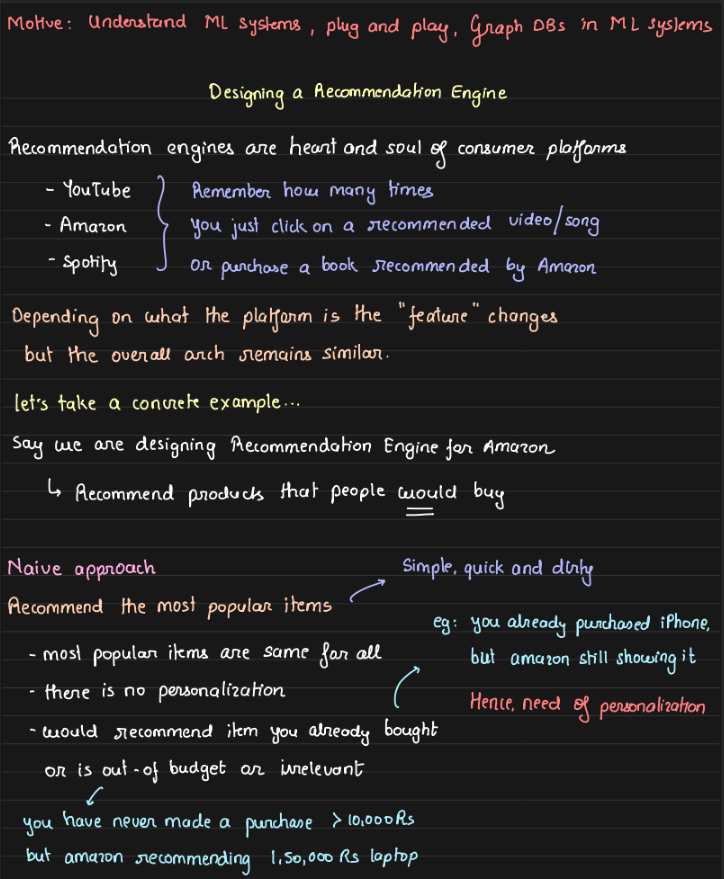 Motive: Understand ML systems, plug and play, Graph DBs in ML systems
Designing a Recommendation Engine
Recommendation engines are heart and soul of consumer platforms
- YouTube
- Amazon
- Spotify
Remember how many times
you just click on a recommended video/song
or purchase a book recommended by Amazon
Depending on what the platform is the "feature" changes
but the overall arch remains similar.
let's take a concrete example...
Say we are designing Recommendation Engine for Amazon
↳ Recommend products that people would buy
Naive approach
Recommend the most popular items
Simple, quick and dirty
- most popular items are same for all
- there is no personalization
- would recommend item you already bought
or is out-of budget or irrelevant
eg: you already purchased iPhone,
but amazon still showing it
Hence, need of personalization
you have never made a purchase > 10,000 Rs
but amazon recommending 1,50,000 Rs laptop